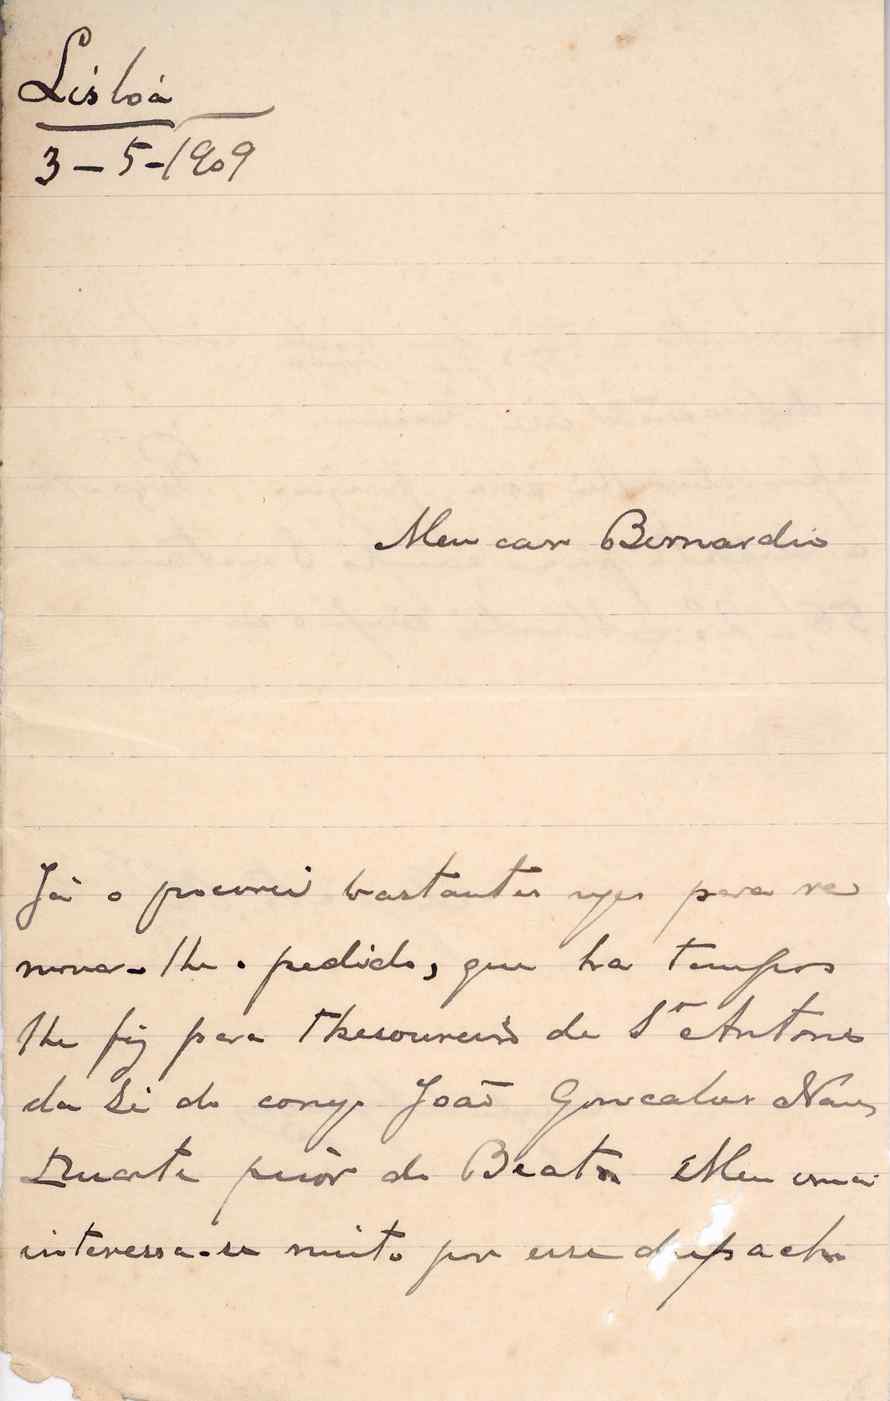 Lisboa
3-5-1909
Meu caro Bernardino
Já o procurei bastantes vezes para re
novar-lhe o pedido, que ha tempos
lhe fiz para thesoureiro de Sto Antonio
da Sé do conego João Goncalves
Duarte priôr do Beato. Meu irmão
interessa-se muito por esse despacho